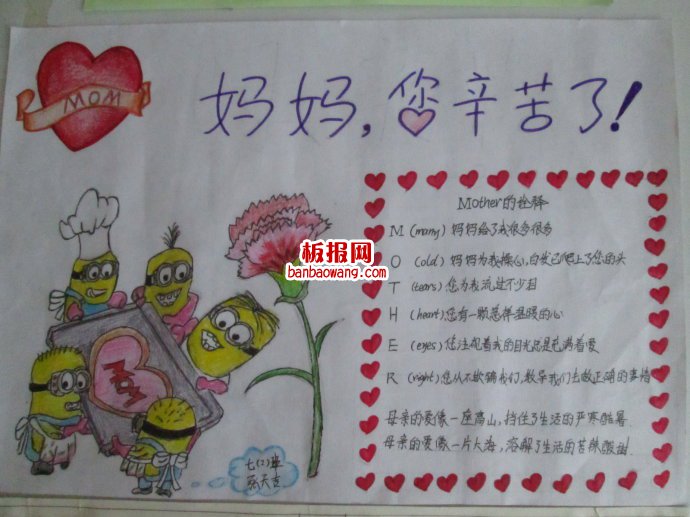 MOM
妈妈,您辛苦了!
Mother的诠释
M (many) 妈妈给了我很多很多
O (old) 妈妈为我操心,白发已爬上了您的头
T (tears) 您为我流过不少泪
H (heart) 您有一颗慈祥温暖的心
E (eyes) 您注视着我的目光总是充满着爱
R (right) 您从不欺骗我们,教导我们去做正确的事情
母亲的爱像一座高山,挡住了生活的严寒酷暑.
母亲的爱像一片大海,溶解了生活的苦辣酸甜.
板报网
banbaowang.com
MOM
七(2)班
张天吉